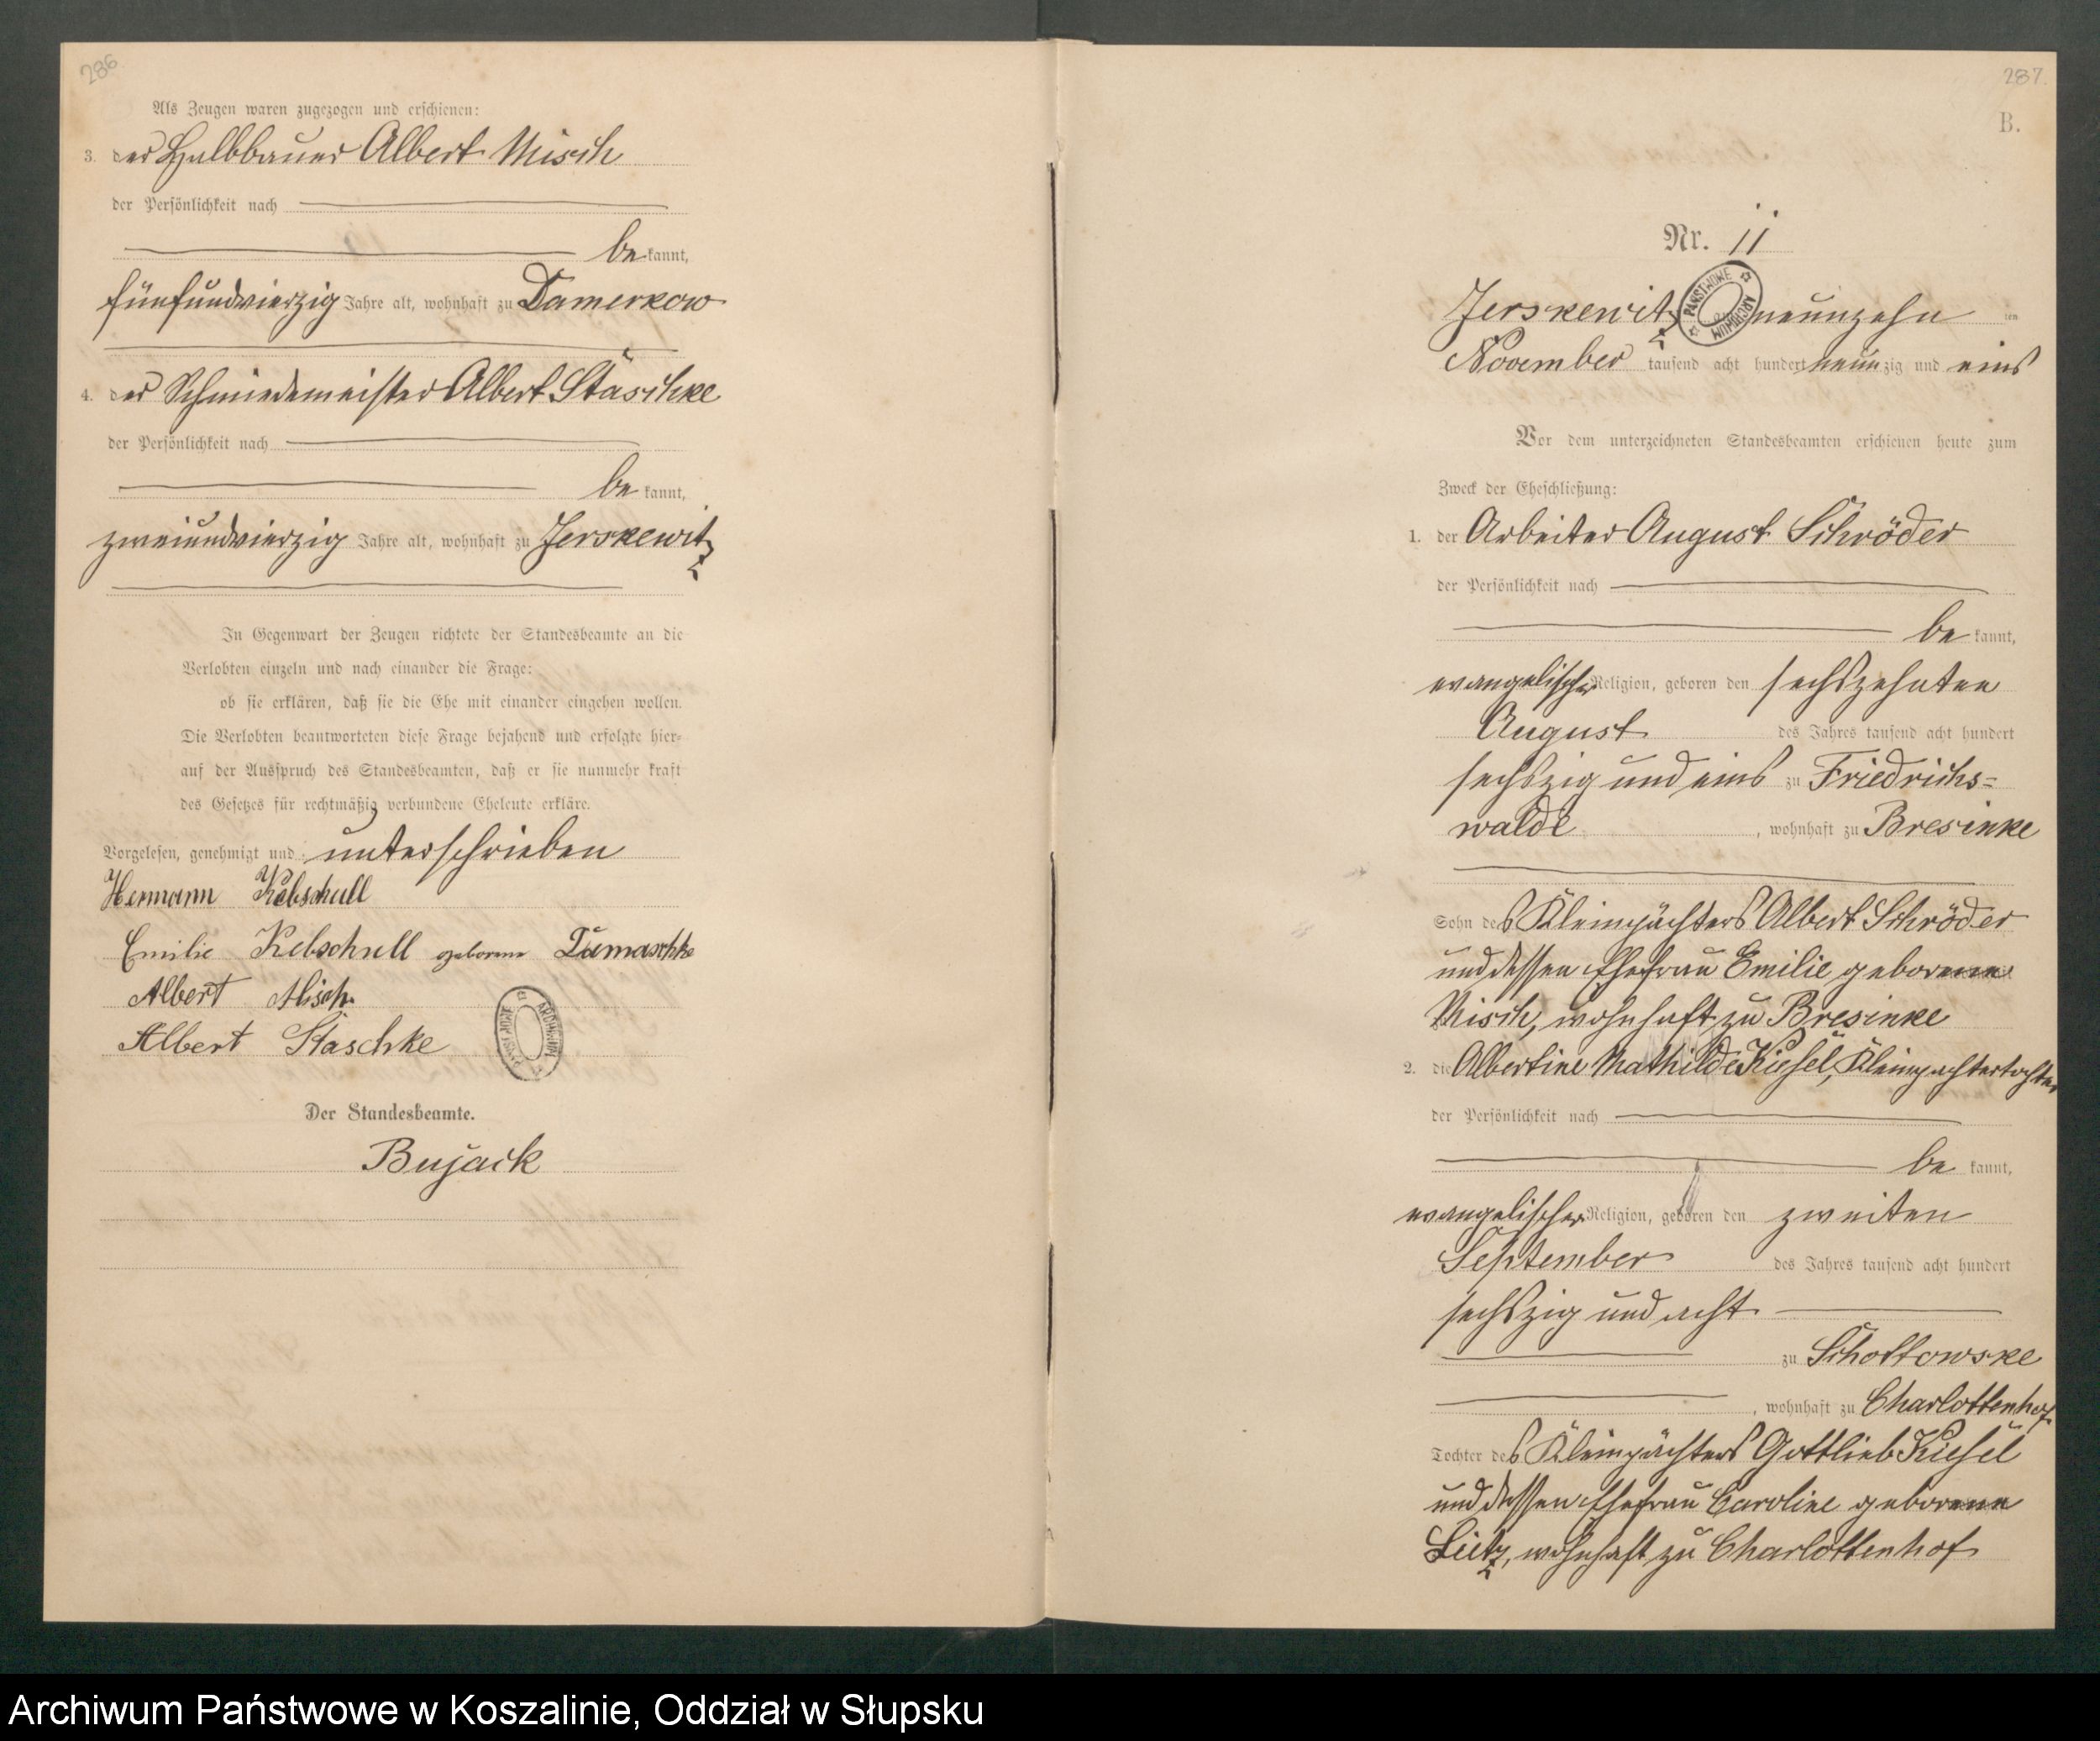 286
Als Zeugen waren zugezogen und erschienen:
3. der Halbbauer Albert Misch
der Persönlichkeit nach
be kannt,
fünfundvierzig Jahre alt, wohnhaft zu Damerkow
4. der Schmiedemeister Albert Staschke
der Persönlichkeit nach
be kannt,
zweiundvierzig Jahre alt, wohnhaft zu Jerskewitz
In Gegenwart der Zeugen richtete der Standesbeamte an die
Verlobten einzeln und nach einander die Frage:
ob sie erklären, daß sie die Ehe mit einander eingehen wollen.
Die Verlobten beantworteten diese Frage bejahend und erfolgte hier-
auf der Ausspruch des Standesbeamten, daß er sie nunmehr kraft
des Gesetzes für rechtmäßig verbundene Eheleute erkläre.
Vorgelesen, genehmigt und unterschrieben
Hermann Kebschull
Emilie Kebschull geborene Damaschke
Albert Misch
Albert Staschke
ARCHIWUM PAŃSTWOWE
Der Standesbeamte.
Bujack
287.
B.
Nr. 11
Jerskewitz neunzehn ten
ARCHIWUM PAŃSTWOWE
November tausend acht hundert neunzig und eins
Vor dem unterzeichneten Standesbeamten erschienen heute zum
Zweck der Eheschließung:
1. der Arbeiter August Schröder
der Persönlichkeit nach
be kannt,
evangelischer Religion, geboren den sechszehnten
August des Jahres tausend acht hundert
sechszig und eins zu Friedrichs-
walde, wohnhaft zu Bresinke
Sohn des Kleinpächters Albert Schröder
und dessen Ehefrau Emilie geborene
Misch, wohnhaft zu Bresinke
2. die Albertine Mathilde Kiesel, Kleinpachtertochter
der Persönlichkeit nach
be kannt,
evangelischer Religion, geboren den zweiten
September des Jahres tausend acht hundert
sechszig und acht
zu Schottowske
, wohnhaft zu Charlottenhof
Tochter des Kleinpächters Gottlieb Kiesel
und dessen Ehefrau Caroline geborene
Lietz, wohnhaft zu Charlottenhof
Archiwum Państwowe w Koszalinie, Oddział w Słupsku